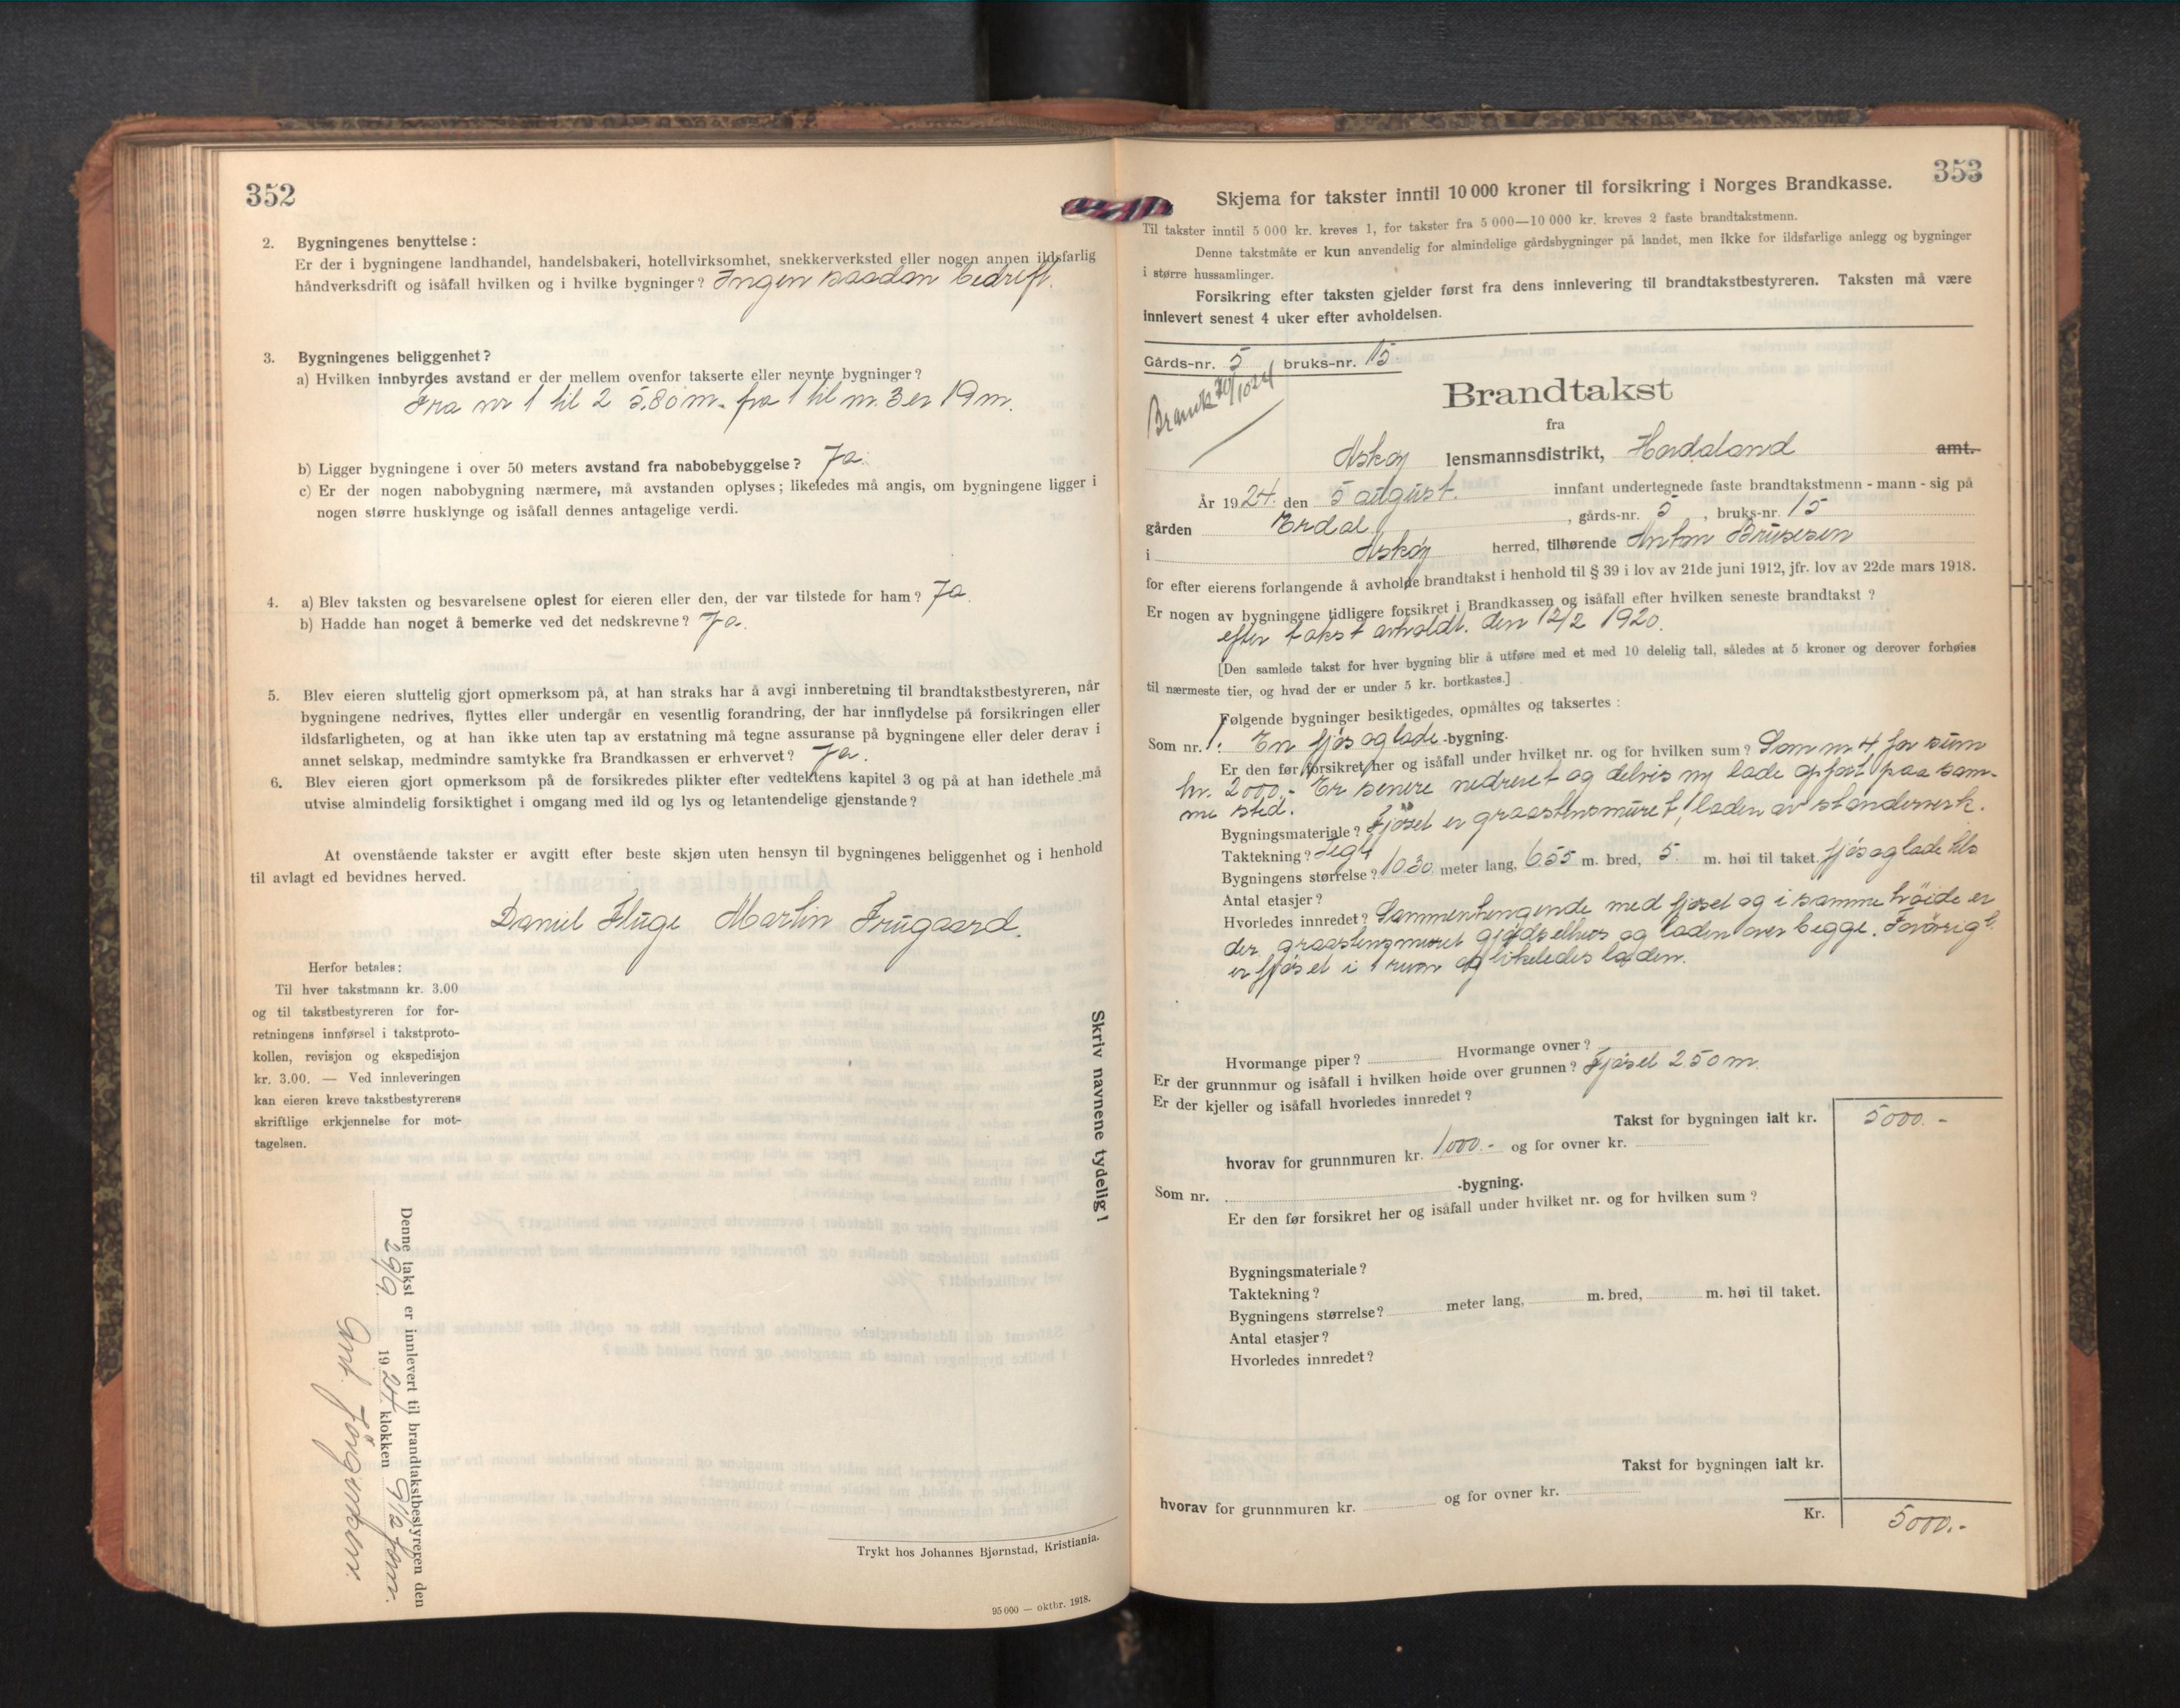 352
2. Bygningenes benyttelse:
Er der i bygningene landhandel, handelsbakeri, hotellvirksomhet, snekkerverksted eller nogen annen ildsfarlig
håndverksdrift og isåfall hvilken og i hvilke bygninger? Ingen saadan bedrift.
3. Bygningenes beliggenhet?
a) Hvilken innbyrdes avstand er der mellem ovenfor takserte eller nevnte bygninger?
Fra nr 1 til 2 5.80 m. fra 1 til nr. 3 er 19 m.
b) Ligger bygningene i over 50 meters avstand fra nabobebyggelse? Ja.
c) Er der nogen nabobygning nærmere, må avstanden oplyses; likeledes må angis, om bygningene ligger i
nogen større husklynge og isåfall dennes antagelige verdi.
4. a) Blev taksten og besvarelsene oplest for eieren eller den, der var tilstede for ham? Ja.
b) Hadde han noget å bemerke ved det nedskrevne? Ja.
5. Blev eieren sluttelig gjort opmerksom på, at han straks har å avgi innberetning til brandtakstbestyreren, når
bygningene nedrives, flyttes eller undergår en vesentlig forandring, der har innflydelse på forsikringen eller
ildsfarligheten, og at han ikke uten tap av erstatning må tegne assuranse på bygningene eller deler derav i
annet selskap, medmindre samtykke fra Brandkassen er erhvervet? Ja.
6. Blev eieren gjort opmerksom på de forsikredes plikter efter vedtektens kapitel 3 og på at han idethele må
utvise almindelig forsiktighet i omgang med ild og lys og letantendelige gjenstande?
At ovenstående takster er avgitt efter beste skjøn uten hensyn til bygningenes beliggenhet og i henhold
til avlagt ed bevidnes herved.
Daniel Fluge Martin Frugaard.
Herfor betales:
Til hver takstmann kr. 3.00
og til takstbestyreren for for-
retningens innførsel i takstproto-
kollen, revisjon og ekspedisjon
kr. 3.00. — Ved innleveringen
kan eieren kreve takstbestyrerens
skriftlige erkjennelse for mot-
tagelsen.
Skriv navnene tydelig!
Denne takst er innlevert til brandtakstbestyreren den
29/9. 1924. klokken 9 1/2 form.
Trykt hos Johannes Bjørnstad, Kristiania.
95 000 — oktbr. 1918.
353
Skjema for takster inntil 10 000 kroner til forsikring i Norges Brandkasse.
Til takster inntil 5 000 kr. kreves 1, for takster fra 5 000—10 000 kr. kreves 2 faste brandtakstmenn.
Denne takstmåte er kun anvendelig for almindelige gårdsbygninger på landet, men ikke for ildsfarlige anlegg og bygninger
i større hussamlinger.
Forsikring efter taksten gjelder først fra dens innlevering til brandtakstbestyreren. Taksten må være
innlevert senest 4 uker efter avholdelsen.
Gårds-nr. 5 bruks-nr. 15.
Brandtakst
fra
Askøy lensmannsdistrikt, Hordaland amt.
År 1924. den 5 august. innfant undertegnede faste brandtakstmenn - mann - sig på
gården Erdal, gårds-nr. 5, bruks-nr. 15
i Askøy herred, tilhørende Anton Brusesen
for efter eierens forlangende å avholde brandtakst i henhold til § 39 i lov av 21de juni 1912, jfr. lov av 22de mars 1918.
Er nogen av bygningene tidligere forsikret i Brandkassen og isåfall efter hvilken seneste brandtakst?
efter takst avholdt. den 12/2 1920.
[Den samlede takst for hver bygning blir å utføre med et med 10 delelig tall, således at 5 kroner og derover forhøies
til nærmeste tier, og hvad der er under 5 kr. bortkastes.]
Følgende bygninger besiktigedes, opmåltes og taksertes:
Som nr. 1. En fjøs og lade-bygning.
Er den før forsikret her og isåfall under hvilket nr. og for hvilken sum? Som nr 4 for sum
kr. 2000,- Er senere nedrevet og delvis ny lade opført paa sam-
me sted.
Bygningsmateriale? Fjøset er graastensmuret, laden av standerverk.
Taktekning? Tegl
Bygningens størrelse? 10.30 meter lang, 6.55 m. bred, 5. m. høi til taket. fjøs og lade tils
Antal etasjer?
Hvorledes innredet? Sammenhengende med fjøset og i samme høide er
der graastensmuret gjødselhus og laden over begge. Forøvrigt
er fjøset i 1 rum og likeledes laden.
Hvormange piper? Hvormange ovner?
Er der grunnmur og isåfall i hvilken høide over grunnen? Fjøset 2.50 m.
Er der kjeller og isåfall hvorledes innredet?
Takst for bygningen ialt kr. 5000.-
hvorav for grunnmuren kr. 1000.- og for ovner kr.
Som nr. -bygning.
Er den før forsikret her og isåfall under hvilket nr. og for hvilken sum?
Bygningsmateriale?
Taktekning?
Bygningens størrelse? meter lang, m. bred, m. høi til taket.
Antal etasjer?
Hvorledes innredet?
Takst for bygningen ialt kr.
hvorav for grunnmuren kr. og for ovner kr.
Kr. 5000.-